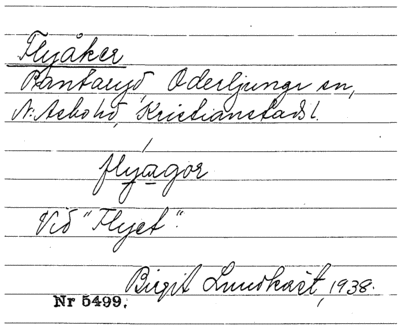 Flyåker
Bantaryd, Oderljunga sn,
N. Asbo hd, Kristianstads l.
flyagor
Vid "Flyet".
Birgit Lundkvist, 1938.
Nr 5499.